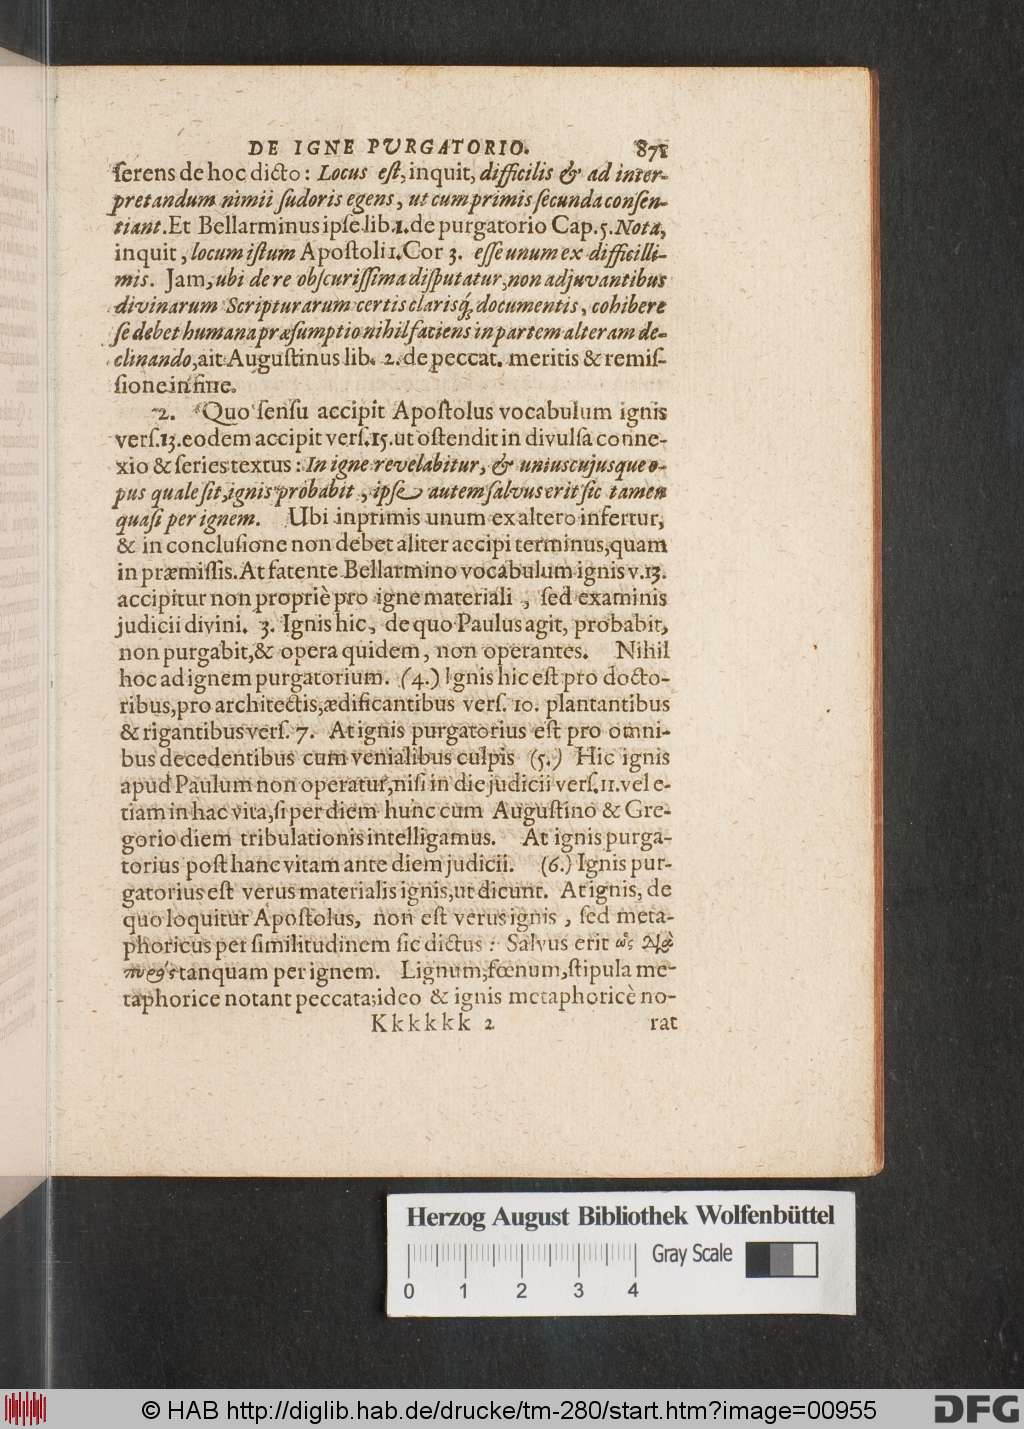 DE IGNE PVRGATORIO. 871
ſerens de hoc dicto: Locus eſt, inquit, difficilis & ad inter-
pretandum nimii ſudoris egens, ut cum primis ſecunda conſen-
tiant. Et Bellarminus ipſe lib. 1. de purgatorio Cap. 5. Nota,
inquit, locum iſtum Apoſtoli 1. Cor 3. eſſe unum ex difficilli-
mis. Jam, ubi de re obſcuriſſima diſputatur, non adjuvantibus
divinarum Scripturarum certis clarisq́; documentis, cohibere
ſe debet humana præſumptio nihil faciens in partem alteram de-
clinando, ait Auguſtinus lib. 2. de peccat. meritis & remiſ-
ſione in fine.
2. Quo ſenſu accipit Apoſtolus vocabulum ignis
verſ. 13. eodem accipit verſ. 15. ut oſtendit in divulſa conne-
xio & ſeries textus: In igne revelabitur, & uniuscujusque o-
pus quale ſit, ignis probabit, ipſe autem ſalvus erit ſic tamen
quaſi per ignem. Ubi inprimis unum ex altero infertur,
& in concluſione non debet aliter accipi terminus, quam
in præmiſſis. At fatente Bellarmino vocabulum ignis v. 13.
accipitur non propriè pro igne materiali, ſed examinis
judicii divini. 3. Ignis hic, de quo Paulus agit, probabit,
non purgabit, & opera quidem, non operantes. Nihil
hoc ad ignem purgatorium. (4.) Ignis hic eſt pro docto-
ribus, pro architectis, ædificantibus verſ. 10. plantantibus
& rigantibus verſ. 7. At ignis purgatorius eſt pro omni-
bus decedentibus cum venialibus culpis (5.) Hic ignis
apud Paulum non operatur, niſi in die judicii verſ. 11. vel e-
tiam in hac vita, ſi per diem hunc cum Auguſtino & Gre-
gorio diem tribulationis intelligamus. At ignis purga-
torius poſt hanc vitam ante diem judicii. (6.) Ignis pur-
gatorius eſt verus materialis ignis, ut dicunt. At ignis, de
quo loquitur Apoſtolus, non eſt verus ignis, ſed meta-
phoricus per ſimilitudinem ſic dictus: Salvus erit ὡς διὰ
πυρὸς tanquam per ignem. Lignum, fœnum, ſtipula me-
taphorice notant peccata; ideo & ignis metaphoricè no-
Kkkkkk 2 rat
Herzog August Bibliothek Wolfenbüttel
Gray Scale
0 1 2 3 4
© HAB http://diglib.hab.de/drucke/tm-280/start.htm?image=00955
DFG